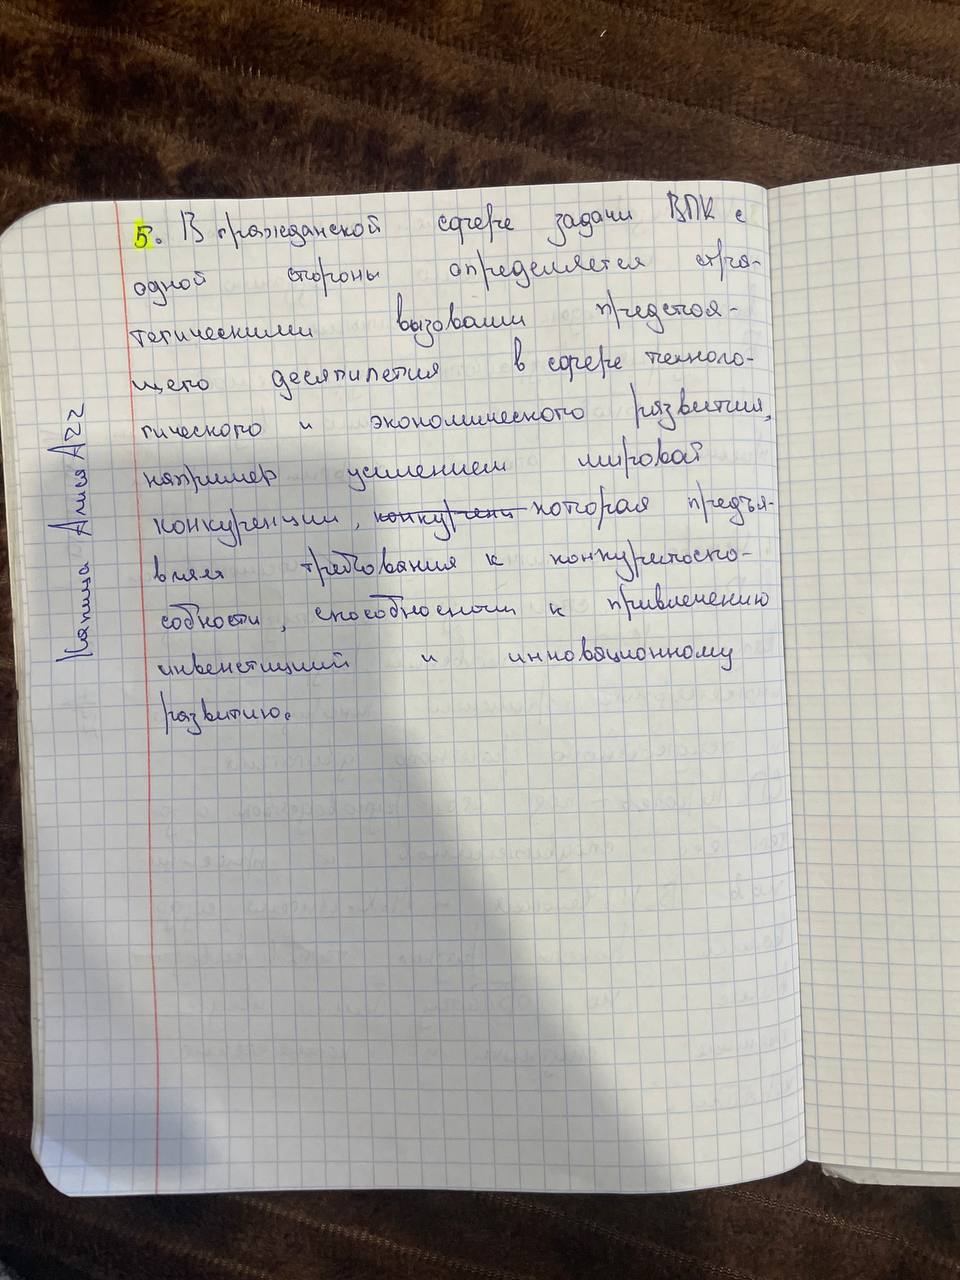 5. В гражданской сфере задачи ВПК с
одной стороны определяется стра-
тегическими вызовами предстоя-
щего десятилетия в сфере техноло-
гического и экономического развития,
например усилением мировой
конкуренции, конкурени которая предъя-
вляет требования к конкурентоспо-
собности, способности к привлечению
инвенстиций и инновационному
развитию.
Капица Алиса А22